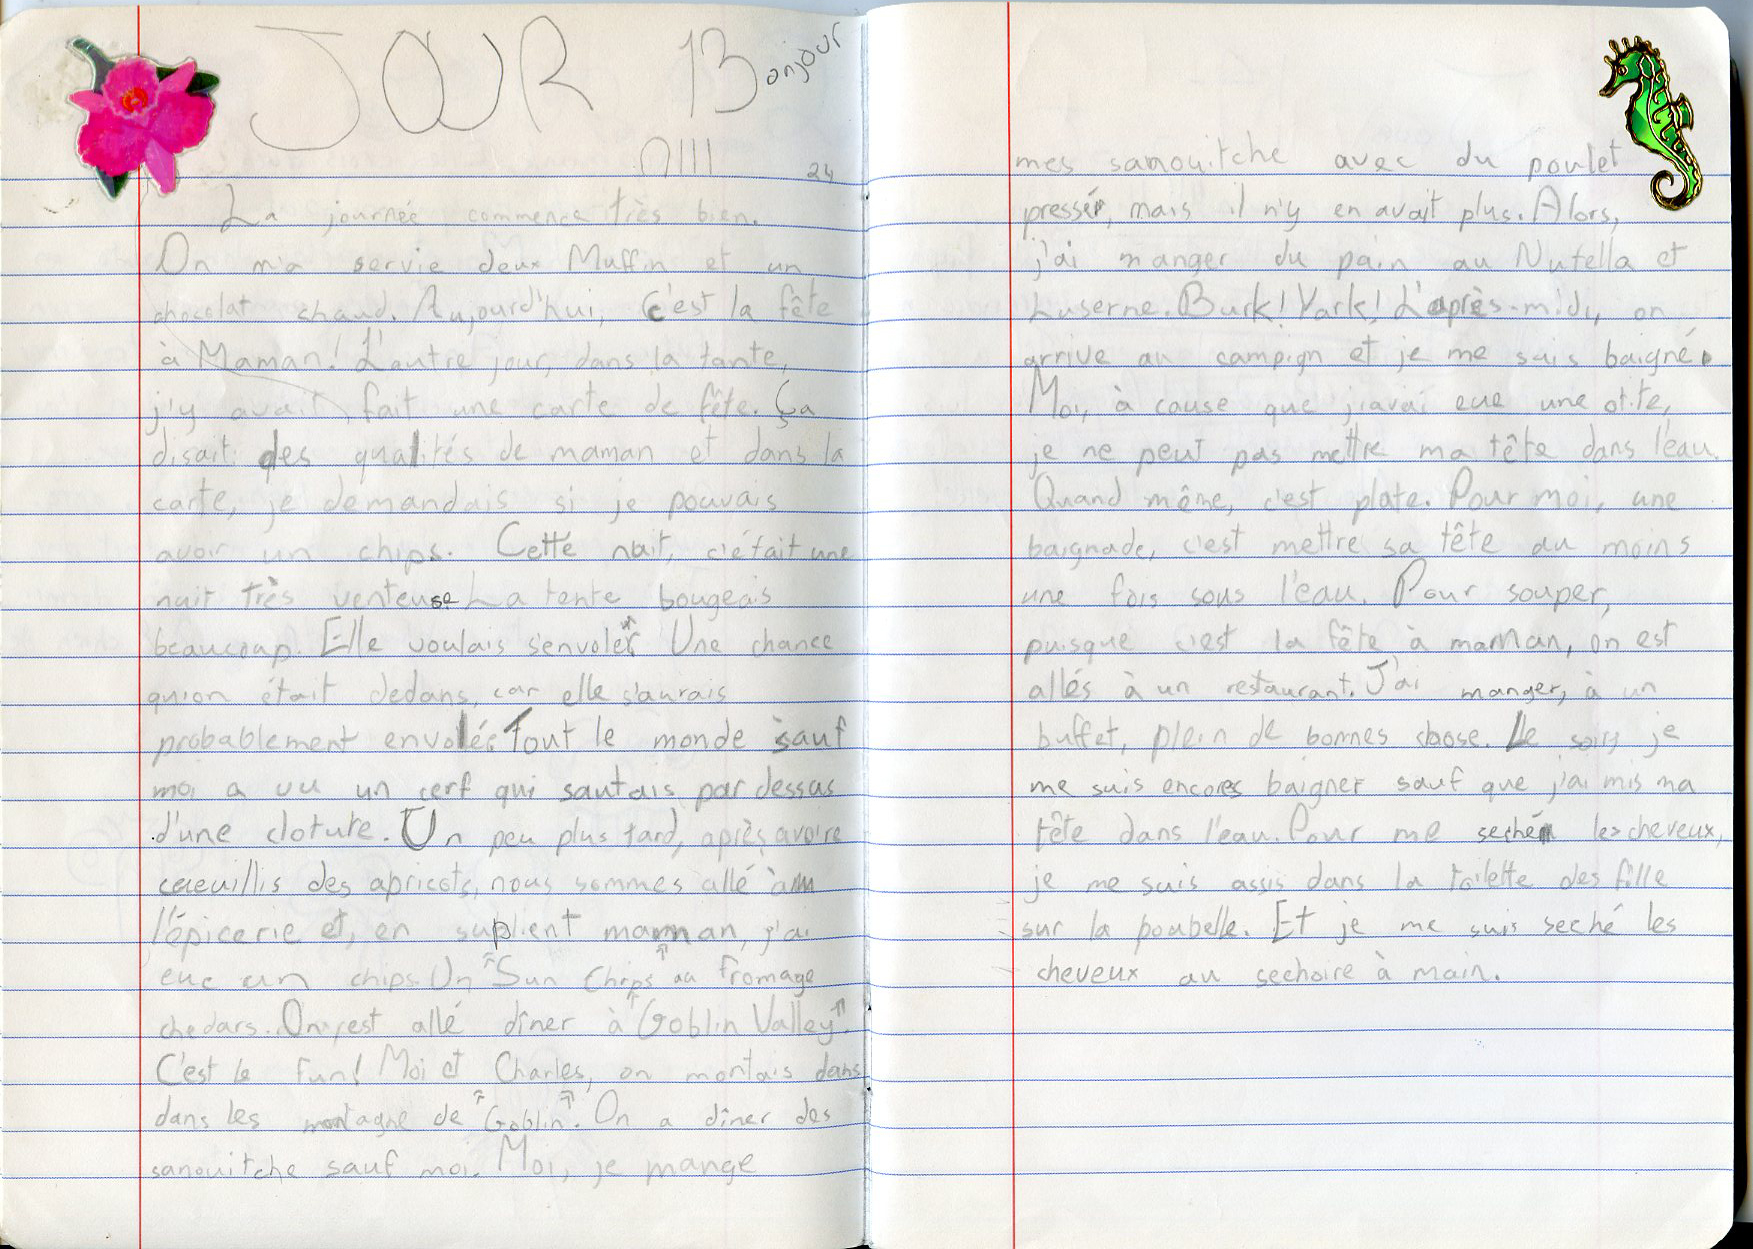 JOUR 13 onjour
24
La journée commence très bien.
On m'a servie deux Muffin et un
chocolat chaud. Aujourd'hui, c'est la fête
à Maman! L'autre jour, dans la tante,
j'y avait fait une carte de fête. Ça
disait des qualités de maman et dans la
carte, je demandais si je pouvais
avoir un chips. Cette nuit, c'était une
nuit très venteuse La tente bougeais
beaucoup. Elle voulais s'envoler Une chance
qu'on était dedans, car elle s'aurais
probablement envolée Tout le monde sauf
moi a vu un cerf qui sautais par dessus
d'une cloture. Un peu plus tard, après avoire
caeuillis des apricots, nous sommes allé à
l'épicerie et, en suplient maman, j'ai
eue un chips. Un "Sun Chips" au fromage
chedars. On est allé dîner à "Goblin Valley".
C'est le fun! Moi et Charles, on montais dans
dans les montagne de "Goblin". On a dîner des
sanouitche sauf moi. Moi, je mange
mes sanouitche avec du poulet
presser, mais il n'y en avait plus. Alors,
j'ai manger du pain au Nutella et
Luserne. Burk! Yark! L'après-midi, on
arrive au campign et je me suis baigné.
Moi, à cause que j'avai eue une otite,
je ne peut pas mettre ma tête dans l'eau.
Quand même, c'est plate. Pour moi, une
baignade, c'est mettre sa tête au moins
une fois sous l'eau. Pour souper,
puisque c'est la fête à maman, on est
allés à un restaurant. J'ai manger, à un
buffet, plein de bonnes chose. Le soir, je
me suis encores baigner sauf que j'ai mis ma
tête dans l'eau. Pour me seché les cheveux,
je me suis assis dans la toilette des fille
sur la poubelle. Et je me suis seché les
cheveux au sechoire à main.